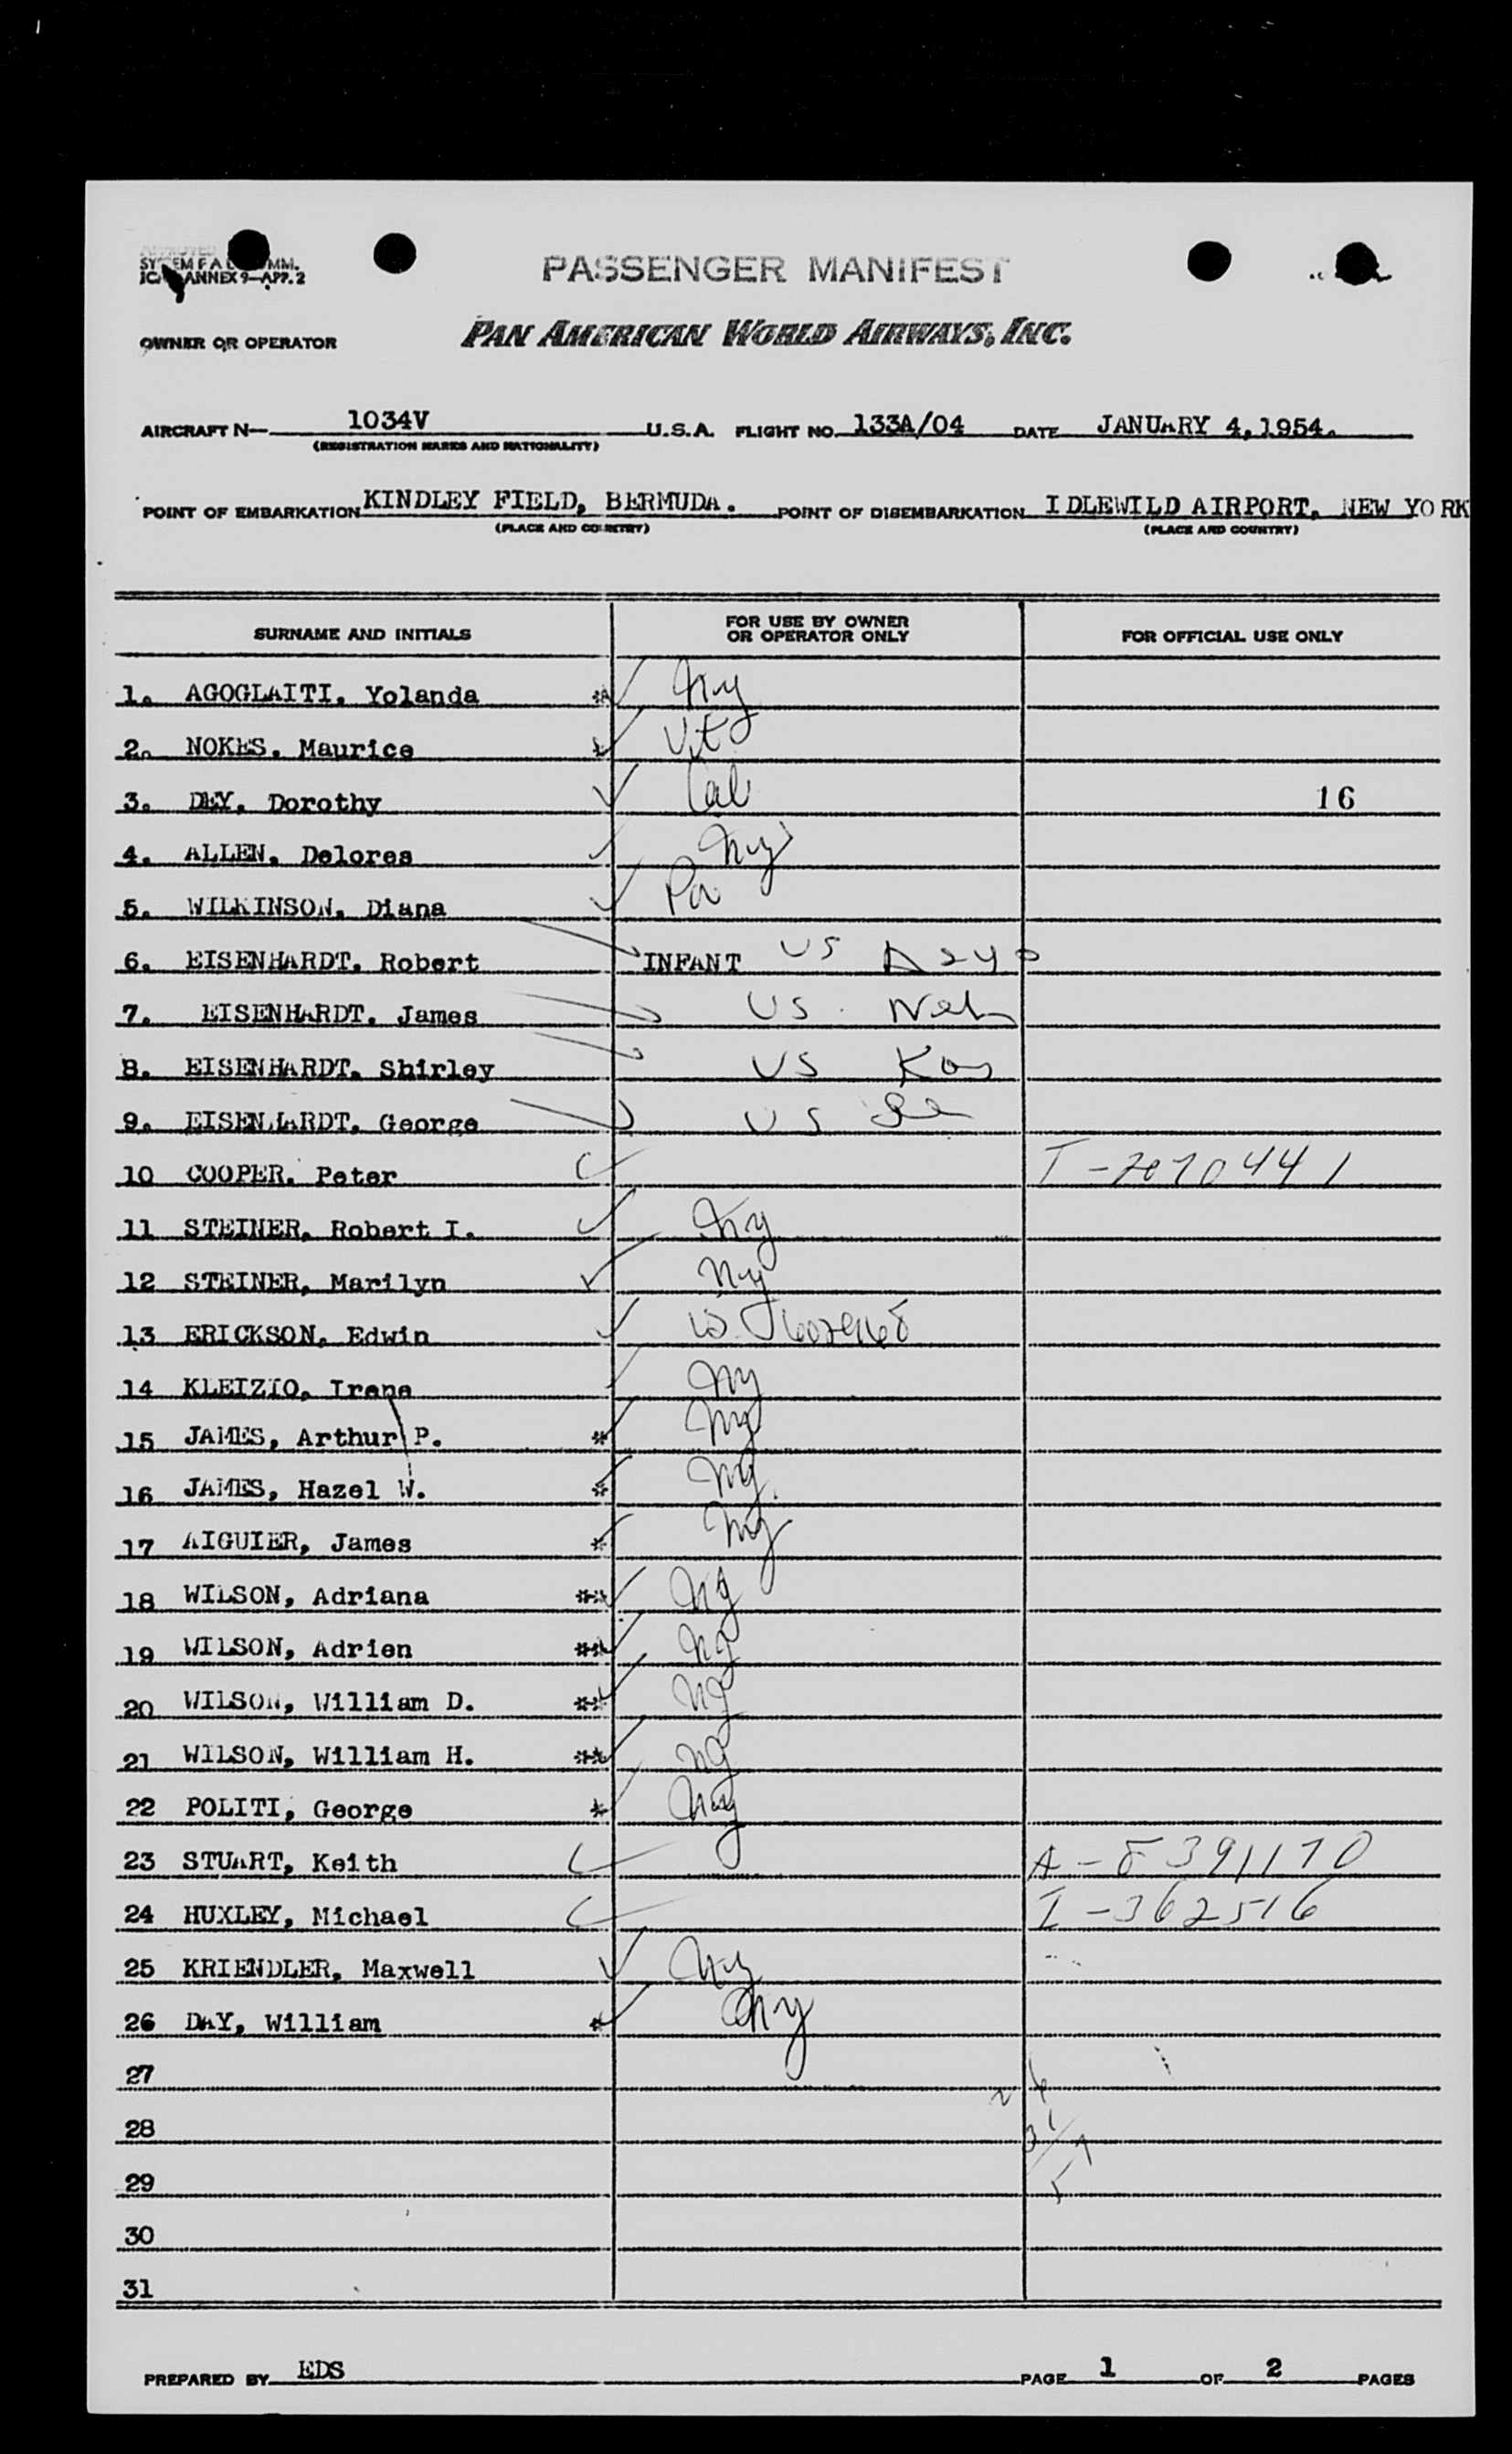 PASSENGER MANIFEST
ANNEX 9—APP. 2
OWNER OR OPERATOR PAN AMERICAN WORLD AIRWAYS, INC.
AIRCRAFT N— 1034V U.S.A. FLIGHT NO. 133A/04 DATE JANUARY 4, 1954.
(REGISTRATION MARKS AND NATIONALITY)
POINT OF EMBARKATION KINDLEY FIELD, BERMUDA. POINT OF DISEMBARKATION IDLEWILD AIRPORT, NEW YORK
(PLACE AND COUNTRY) (PLACE AND COUNTRY)
SURNAME AND INITIALS FOR USE BY OWNER OR OPERATOR ONLY FOR OFFICIAL USE ONLY
1. AGOGLAITI, Yolanda * Ny
2. NOKES, Maurice *
3. DEY, Dorothy Cal 16
4. ALLEN, Delores Ny
5. WILKINSON, Diana Pa
6. EISENHARDT, Robert INFANT US
7. EISENHARDT, James US Neb
8. EISENHARDT, Shirley US Kas
9. EISENHARDT, George US
10 COOPER, Peter
11 STEINER, Robert I. Ny
12 STEINER, Marilyn Ny
13 ERICKSON, Edwin
14 KLEIZIO, Irene Ny
15 JAMES, Arthur P. * Ny
16 JAMES, Hazel W. * Ny
17 AIGUIER, James * Ny
18 WILSON, Adriana ** Ny
19 WILSON, Adrien ** Ny
20 WILSON, William D. ** Ny
21 WILSON, William H. ** Ny
22 POLITI, George * Ny
23 STUART, Keith A-8391170
24 HUXLEY, Michael I-362516
25 KRIENDLER, Maxwell Ny
26 DAY, William * Ny
27
28
29
30
31
PREPARED BY EDS PAGE 1 OF 2 PAGES